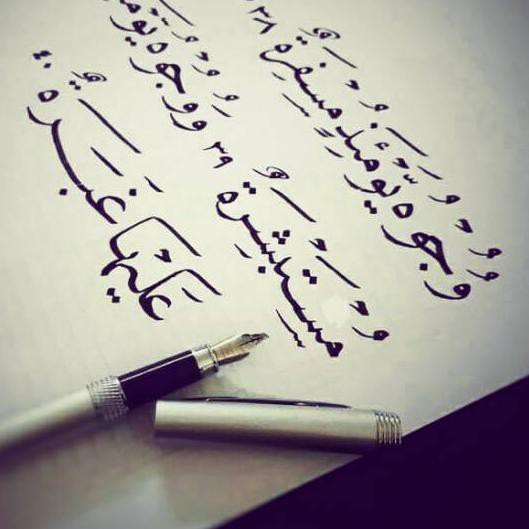 وُجُوهٌ يَوْمَئِذٍ مُسْفِرَةٌ ٣٨
مُسْتَبْشِرَةٌ ٣٩ وَوُجُوهٌ يَوْمَئِذٍ
عَلَيْهَا غَبَرَةٌ ٤٠